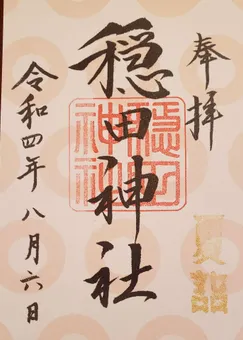 奉拝
夏詣
穏田神社
穏田神社
令和四年八月六日